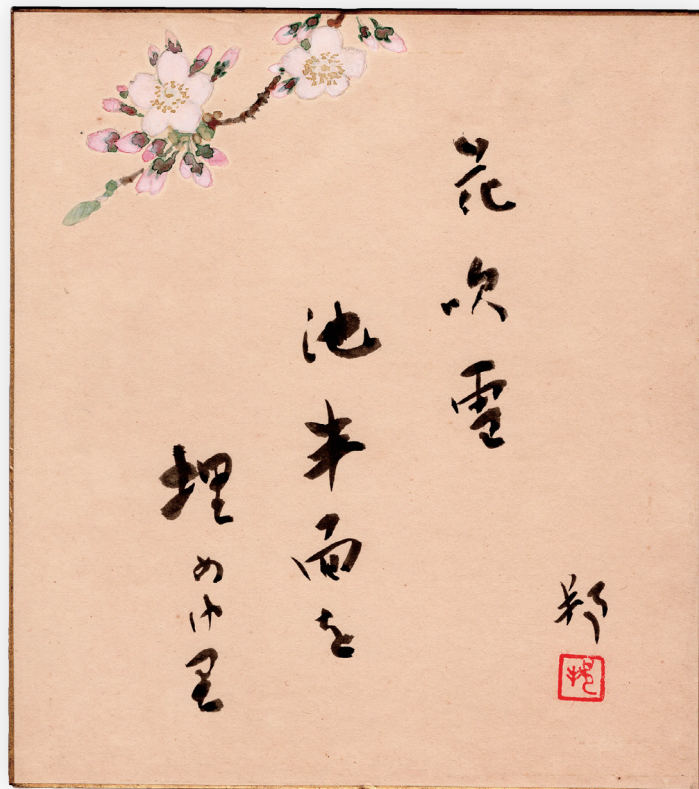 花吹雪
池半面を
埋めけ里